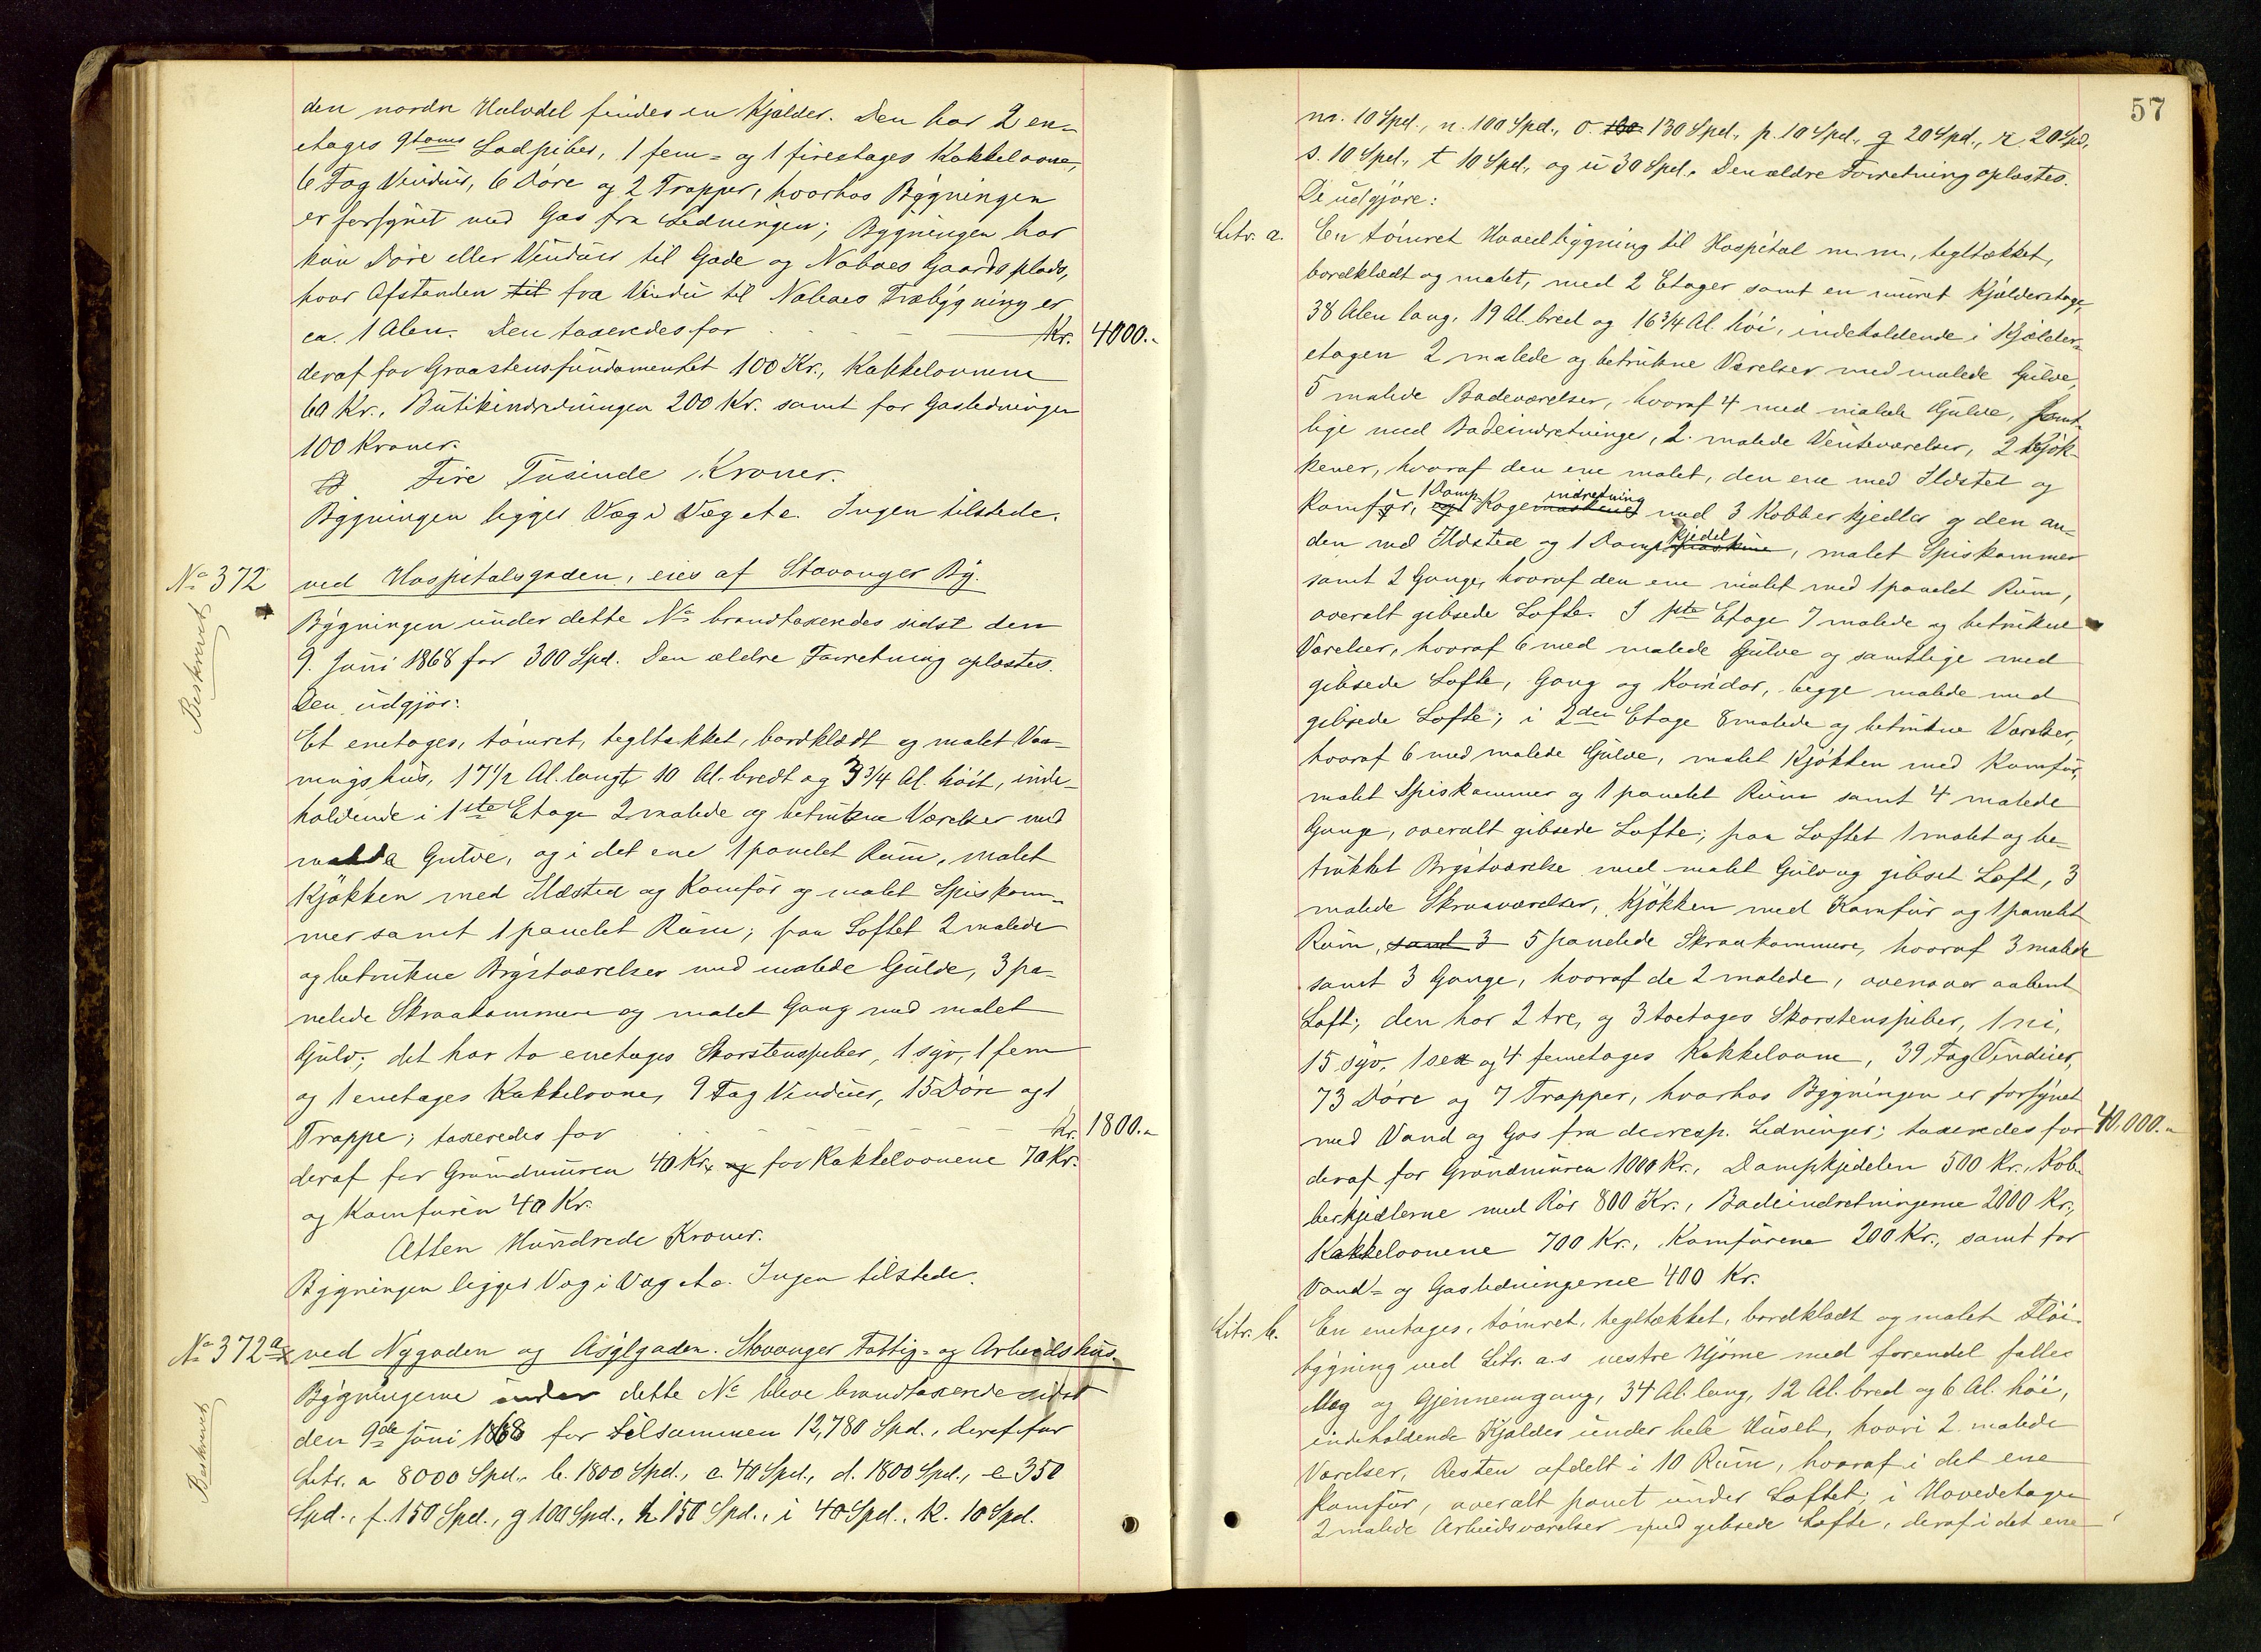 den nordre Halvdel findes en Kjælder. Den har 2 en-
etages 9toms Lodpiber, 1 fem- og 1 fireetages Kakkelovne,
6 Fag Vinduer, 6 Döre og 2 Trapper, hvorhos Bygningen
er forsynet med Gas fra Ledningen; Bygningen har
kun Döre eller Vinduer til Gade og Naboes Gaardsplads,
hvor Afstanden til fra Vindu til Naboes Træbygning er
ca. 1 Alen. Den taxeredes for Kr. 4000.-
deraf for Graastensfundamentet 100 Kr., Kakkelovnene
60 Kr., Butikindredningen 200 Kr. samt for Gasledningen
100 Kroner.
Fire Tusinde Kroner.
Bygningen ligger Væg i Væg etc. Ingen tilstede.
No 372 ved Hospitalsgaden, eies af Stavanger By.
Beskrevet
Bygningen under dette No brandtaxeredes sidst den
9. Juni 1868 for 300 Spd. Den ældre Forretning oplæstes.
Den udgjör:
Et enetages, tömret, tegltækket, bordklædt og malet Vaa-
ningshus, 17 1/2 Al. langt 10 Al. bredt og 3 3/4 Al. höit, inde-
holdende i 1ste Etage 2 malede og betrukne Værelser med
malede Gulve, og i det ene 1 panelet Rum, malet
Kjökken med Ildsted og Komfur og malet Spiskam-
mer samt 1 panelet Rum; paa Loftet 2 malede
og betrukne Brystværelser med malede Gulve, 3 pa-
nelede Skraakammere og malet Gang med malet
Gulv; det har to enetages Skorstenspiber, 1 syv, 1 fem
og 1 enetages Kakkelovne, 9 Fag Vinduer, 15 Döre og 1
Trappe; taxeredes for Kr. 1800.-
deraf for Grundmuren 40 Kr., og for Kakkelovnene 70 Kr.
og Komfuren 40 Kr.
Atten Hundrede Kroner.
Bygningen ligger Væg i Væg etc. Ingen tilstede.
No 372a ved Nygaden og Asylgaden. Stavanger Fattig- og Arbeidshus.
Beskrevet
Bygningerne under dette No bleve brandtaxerede sidst
den 9de Juni 1868 for tilsammen 12,780 Spd., deraf for
Litr. a 8000 Spd., b. 1800 Spd., c. 40 Spd., d. 1800 Spd., e 350
Spd., f. 150 Spd., g 100 Spd., h 150 Spd., i 40 Spd., k. 10 Spd.
57
m. 10 Spd., n. 100 Spd., o. 130 Spd., p. 10 Spd., q 20 Spd., r. 20 Spd,
s. 10 Spd., t 10 Spd., og u 30 Spd. Den ældre Forretning oplæstes.
De udgjöre:
Litr. a. En tömret Hovedbygning til Hospital m. m., tegltækket,
bordklædt og malet, med 2 Etager samt en muret Kjælderetage,
38 Alen lang, 19 Al. bred og 16 3/4 Al. höi, indeholdende i Kjælder-
etagen 2 malede og betrukne Værelser med malede Gulve,
5 malede Badeværelser, hvoraf 4 med malede Gulve, samt-
lige med Badeindretninger, 2 malede Venteværelser, 2 Kjök-
kener, hvoraf den ene malet, den ene med Ildsted og
Komfur, og 1 Damp- Kogemaskine indretning med 3 Kobberkjedler og den an-
den med Ildsted og 1 Dampmaskine kjedel, malet Spiskammer
samt 2 Gange, hvoraf den ene malet med 1 panelet Rum,
overalt gibsede Lofte. I 1ste Etage 7 malede og betrukne
Værelser, hvoraf 6 med malede Gulve og samtlige med
gibsede Lofte, Gang og Koridor, begge malede med
gibsede Lofte; i 2den Etage 8 malede og betrukne Værelser,
hvoraf 6 med malede Gulve, malet Kjökken med Komfur,
malet Spiskammer og 1 panelet Rum samt 4 malede
Gange, overalt gibsede Lofte; paa Loftet 1 malet og be-
trukket Brystværelse med malet Gulv og gibset Loft, 3
malede Skraaværelser, Kjökken med Komfur og 1 panelet
Rum, samt 3 5 panelede Skraakammere, hvoraf 3 malede
samt 3 Gange, hvoraf de 2 malede, ovenover aabent
Loft; den har 2 tre, og 3 toetages Skorstenspiber, 1 ni,
15 syv, 1 sex og 4 femetages Kakkelovne, 39 Fag Vinduer,
73 Döre og 7 Trapper, hvorhos Bygningen er forsynet
med Vand og Gas fra de resp. Ledninger; taxeredes for 40,000.-
deraf for Grundmuren 1000 Kr., Dampkjedelen 500 Kr., Kob-
berkjedlerne med Rör 800 Kr., Badeindretningerne 2000 Kr.,
Kakkelovnene 700 Kr., Komfurene 200 Kr., samt for
Vand- og Gasledningerne 400 Kr.
Litr. b. En enetages, tömret, tegltækket, bordklædt og malet Flöi-
bygning ved Litr. a.s vestre Hjörne med forendel fælles
Væg og Gjennemgang, 34 Al. lang, 12 Al. bred og 6 Al. höi,
indeholdende Kjælder under hele Huset, hvori 2 malede
Værelser, Resten afdelt i 10 Rum, hvoraf i det ene
Komfur, overalt panet under Loftet; i Hovedetagen
2 malede Arbeidsværelser med gibsede Lofte, deraf i det ene